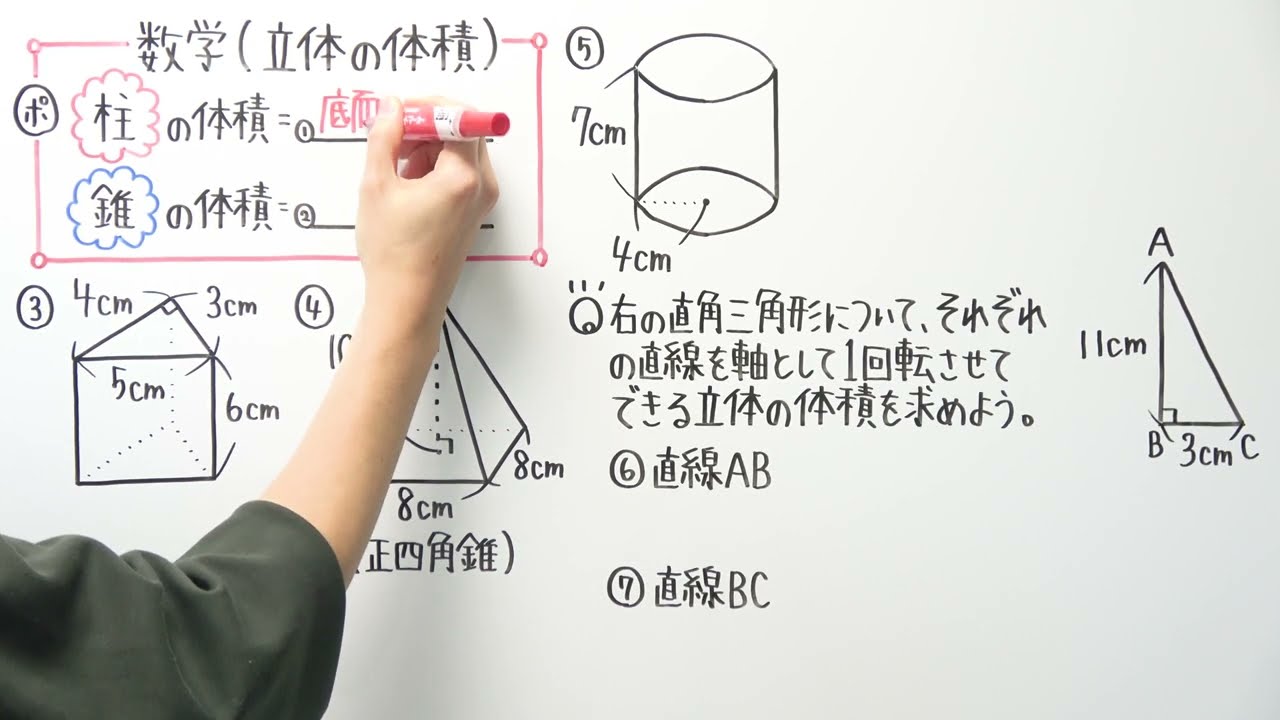 数学(立体の体積)
ポ
柱の体積=①底面
錐の体積=②
③
4cm
3cm
5cm
6cm
④
8cm
8cm
正四角錐)
⑤
7cm
4cm
Q右の直角三角形について、それぞれ
の直線を軸として1回転させて
できる立体の体積を求めよう。
⑥直線AB
⑦直線BC
A
11cm
B
3cm
C